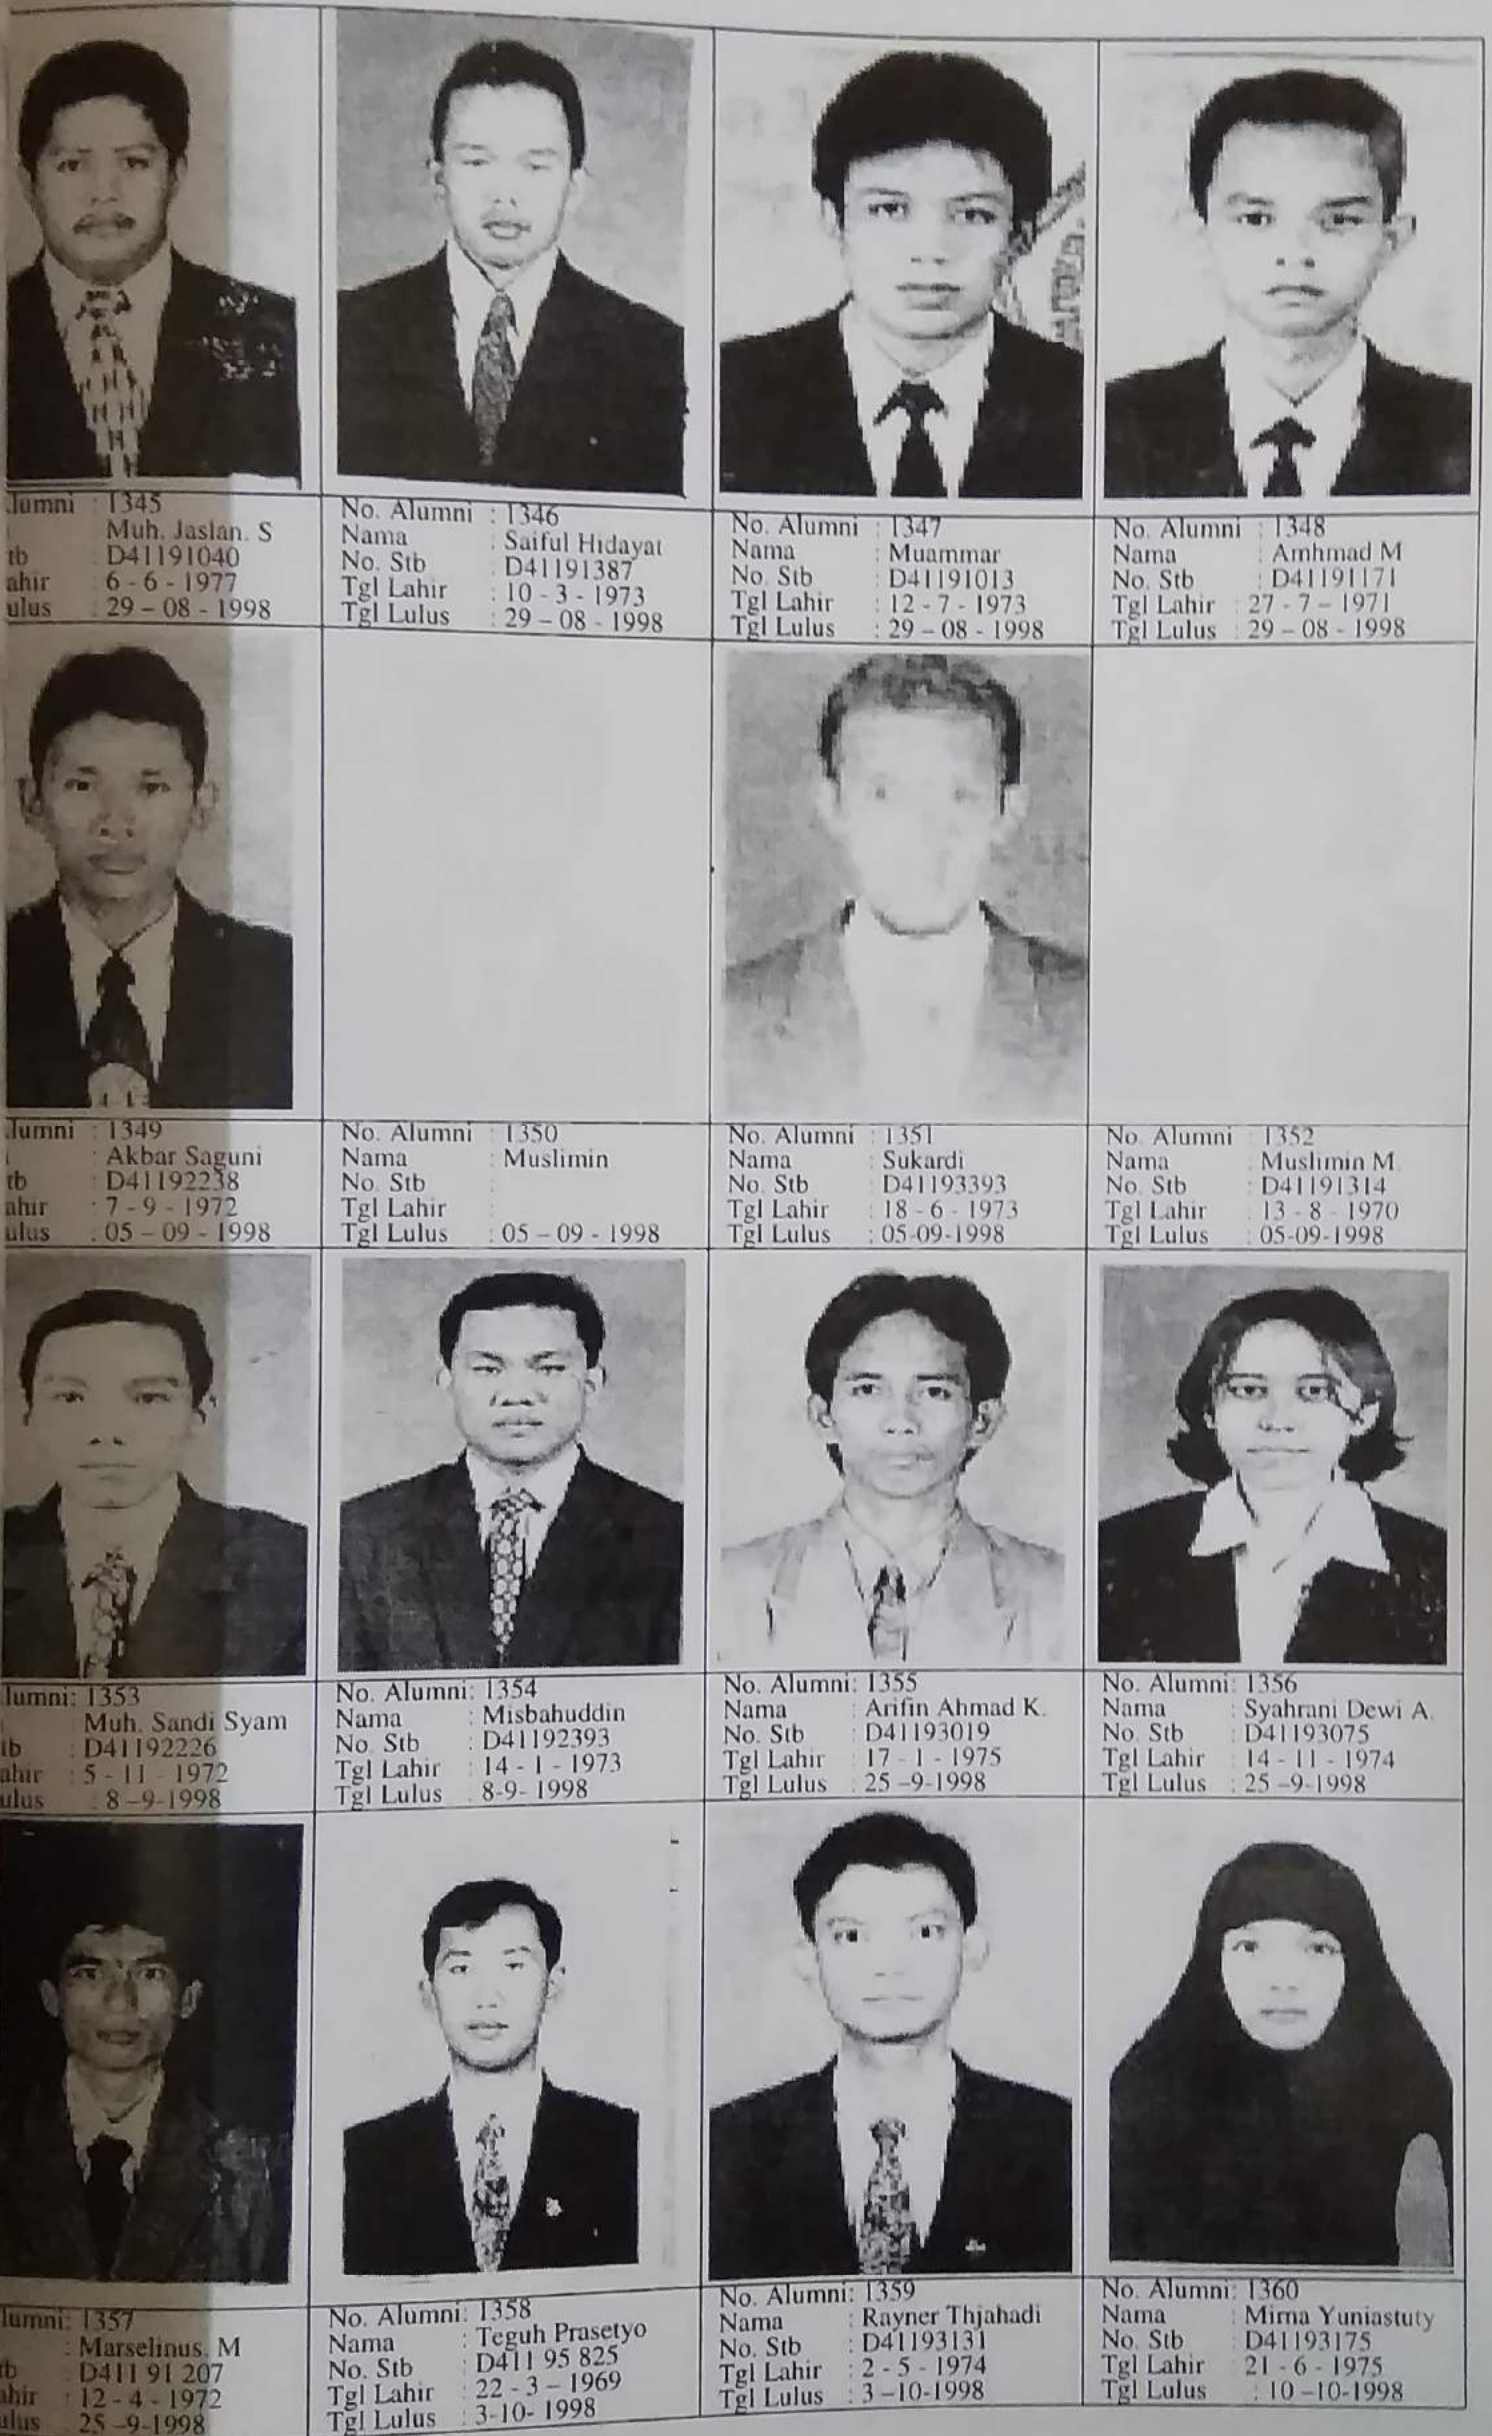 lumni : 1345
Muh. Jaslan. S
tb : D41191040
ahir : 6-6 - 1977
ulus : 29 – 08 - 1998
No. Alumni : 1346
Nama : Saiful Hidayat
No. Stb : D41191387
Tgl Lahir : 10 - 3 - 1973
Tgl Lulus : 29 – 08 - 1998
No. Alumni : 1347
Nama : Muammar
No. Stb : D41191013
Tgl Lahir : 12 - 7 - 1973
Tgl Lulus : 29 – 08 - 1998
No. Alumni : 1348
Nama : Amhmad M
No. Stb : D41191171
Tgl Lahir : 27 - 7 – 1971
Tgl Lulus : 29 – 08 - 1998
lumni : 1349
: Akbar Saguni
tb : D41192238
ahir : 7 - 9 - 1972
ulus : 05 – 09 - 1998
No. Alumni : 1350
Nama : Muslimin
No. Stb :
Tgl Lahir :
Tgl Lulus : 05 – 09 - 1998
No. Alumni : 1351
Nama : Sukardi
No. Stb : D41193393
Tgl Lahir : 18 - 6 - 1973
Tgl Lulus : 05-09-1998
No. Alumni : 1352
Nama : Muslimin M
No. Stb : D41191314
Tgl Lahir : 13 - 8 - 1970
Tgl Lulus : 05-09-1998
lumni: 1353
Muh. Sandi Syam
tb : D41192226
ahir : 5 - 11 - 1972
ulus : 8 –9-1998
No. Alumni: 1354
Nama : Misbahuddin
No. Stb : D41192393
Tgl Lahir : 14 - 1 - 1973
Tgl Lulus : 8-9- 1998
No. Alumni: 1355
Nama : Arifin Ahmad K.
No. Stb : D41193019
Tgl Lahir : 17 - 1 - 1975
Tgl Lulus : 25 –9-1998
No. Alumni: 1356
Nama : Syahrani Dewi A.
No. Stb : D41193075
Tgl Lahir : 14 - 11 - 1974
Tgl Lulus : 25 –9-1998
lumni: 1357
: Marselinus. M
tb : D411 91 207
ahir : 12 - 4 - 1972
ulus : 25 –9-1998
No. Alumni: 1358
Nama : Teguh Prasetyo
No. Stb : D411 95 825
Tgl Lahir : 22 - 3 – 1969
Tgl Lulus : 3-10- 1998
No. Alumni: 1359
Nama : Rayner Thjahadi
No. Stb : D41193131
Tgl Lahir : 2 - 5 - 1974
Tgl Lulus : 3 –10-1998
No. Alumni: 1360
Nama : Mirna Yuniastuty
No. Stb : D41193175
Tgl Lahir : 21 - 6 - 1975
Tgl Lulus : 10 –10-1998